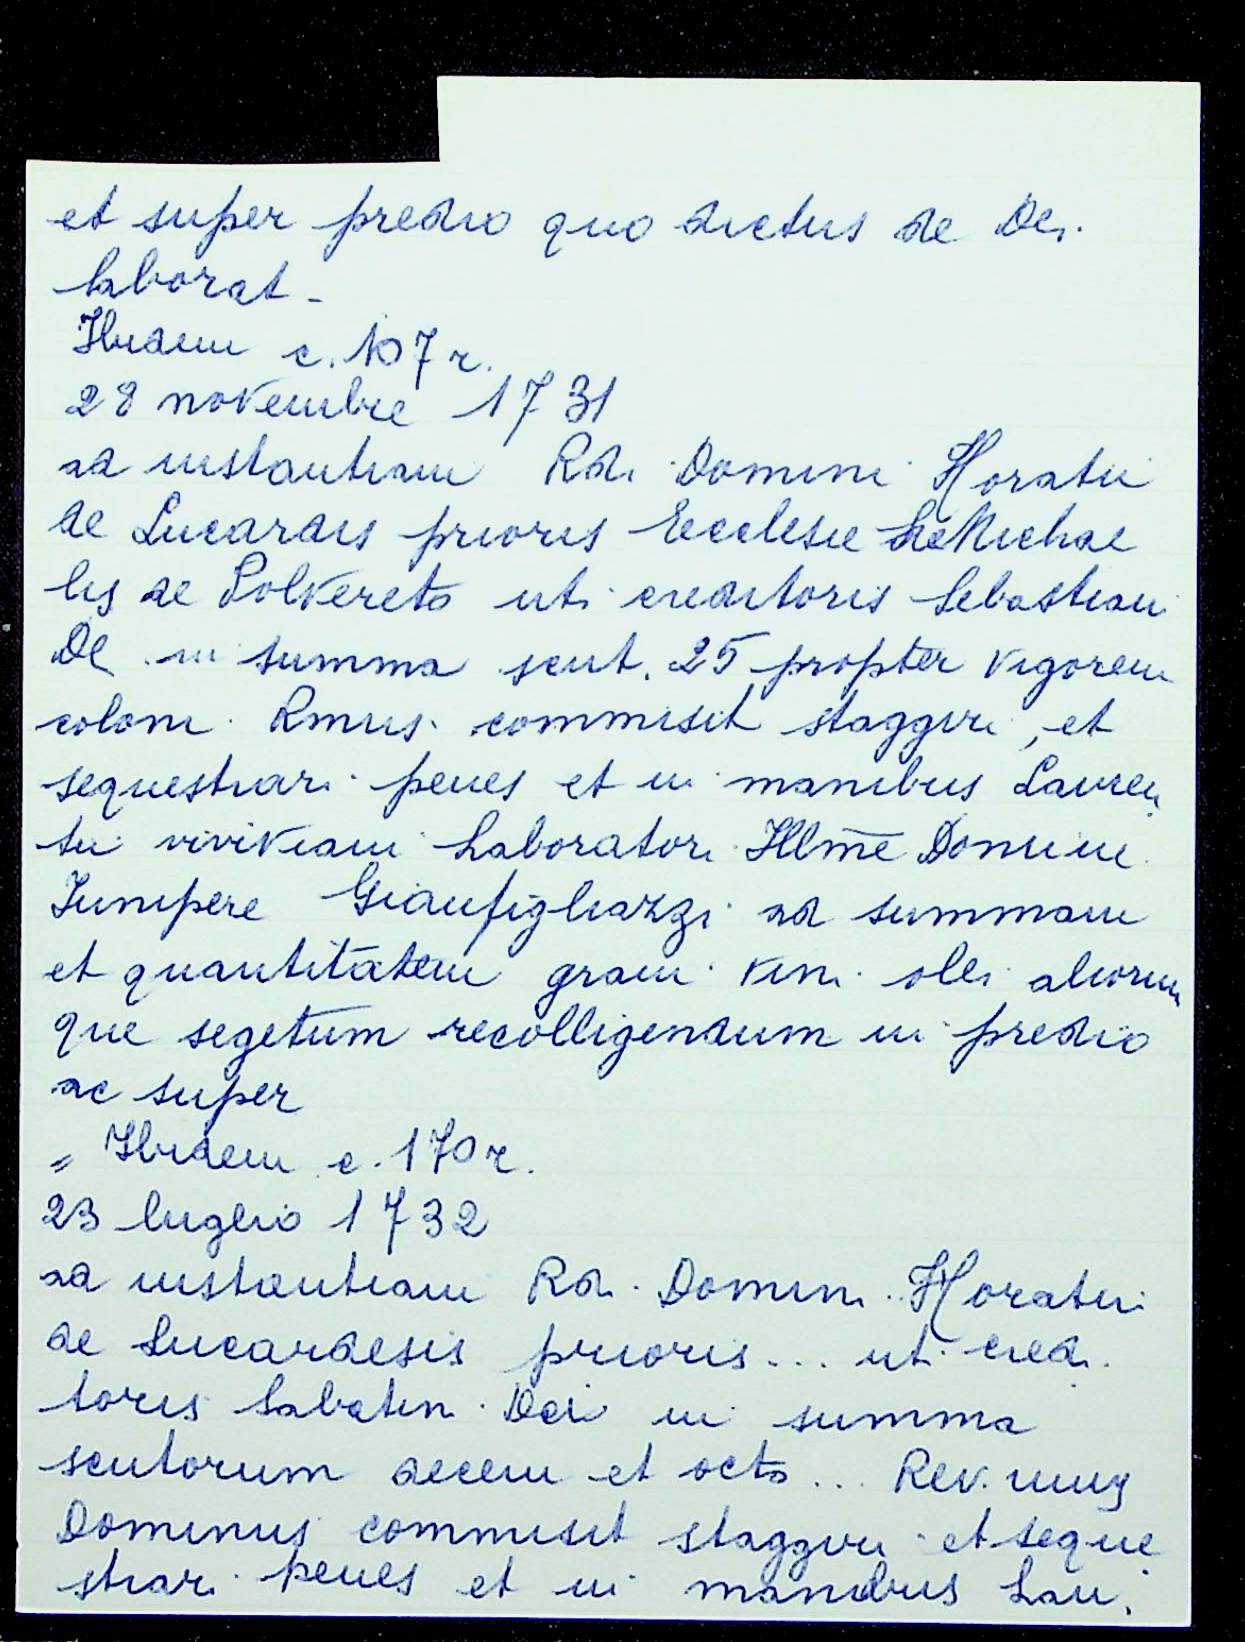 et super predio quo dictus de Dei.
laborat -
Ibidem c. 107 r.
28 novembre 1731
ad instantiam Rdi Domini Horatii
de Lucardis prioris Ecclesie S. Michae
lis de Polvereto uti creditoris Sebastiani
De in summa scut. 25 propter vigorem
coloni Rmus. commisit staggiri, et
sequestrari penes et in manibus Lauren
tii viviviani Laboratori Illme Domine
Iunipere Gianfigliazzi ad summam
et quantitatem grani vini olei aliorum
que segetum recolligendum in predio
ac super
" Ibidem c. 170 r.
23 luglio 1732
ad instantiam Rdi. Domini Horatii
de Lucardesis prioris... uti credi
toris Sabatin Dei in summa
scutorum decem et octo... Rev.mus
Dominus commisit staggiri et seque
strari penes et in manibus Lau.